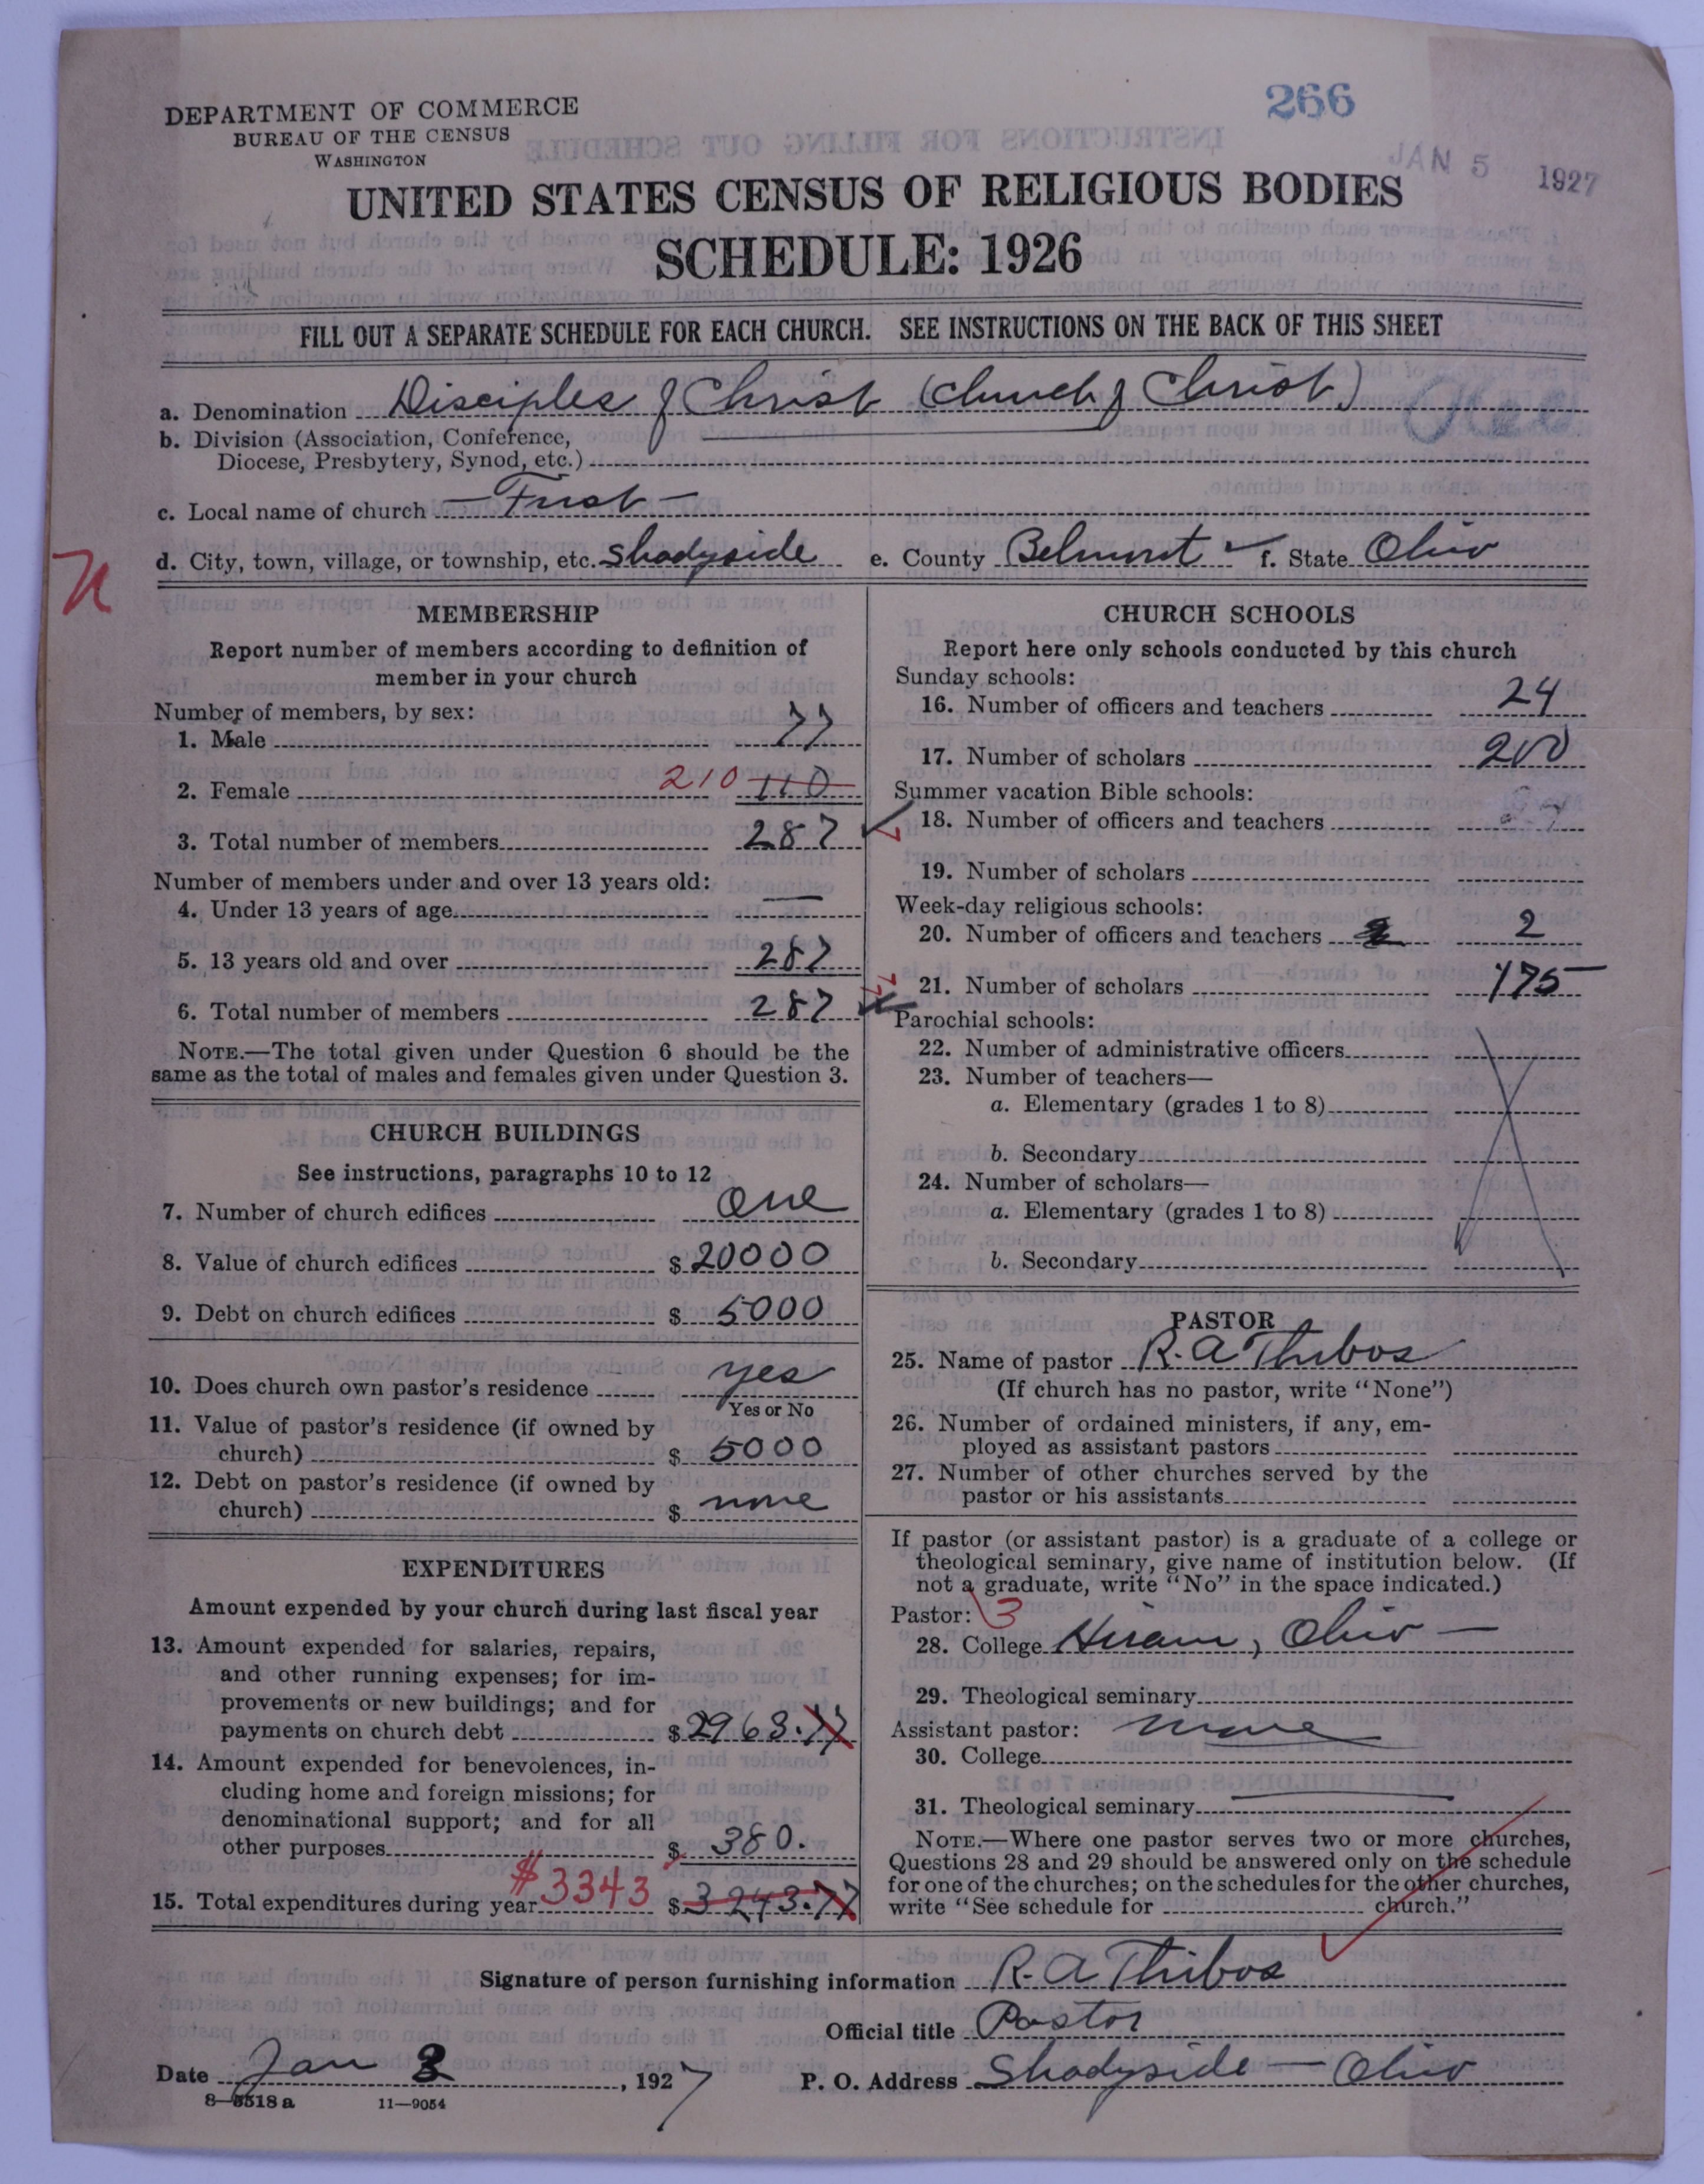 266
DEPARTMENT OF COMMERCE
BUREAU OF THE CENSUS
WASHINGTON
JAN 5 1927
UNITED STATES CENSUS OF RELIGIOUS BODIES
SCHEDULE: 1926
FILL OUT A SEPARATE SCHEDULE FOR EACH CHURCH. SEE INSTRUCTIONS ON THE BACK OF THIS SHEET
a. Denomination Disciples of Christ (Church of Christ)
b. Division (Association, Conference,
Diocese, Presbytery, Synod, etc.)
c. Local name of church - First -
d. City, town, village, or township, etc. Shadyside e. County Belmont f. State Ohio
MEMBERSHIP
Report number of members according to definition of
member in your church
Number of members, by sex:
1. Male 77
2. Female 210 110
3. Total number of members 287
Number of members under and over 13 years old:
4. Under 13 years of age —
5. 13 years old and over 287
6. Total number of members 287
NOTE.—The total given under Question 6 should be the
same as the total of males and females given under Question 3.
CHURCH BUILDINGS
See instructions, paragraphs 10 to 12
7. Number of church edifices One
8. Value of church edifices $ 20000
9. Debt on church edifices $ 5000
10. Does church own pastor's residence yes
Yes or No
11. Value of pastor's residence (if owned by
church) $ 5000
12. Debt on pastor's residence (if owned by
church) $ none
EXPENDITURES
Amount expended by your church during last fiscal year
13. Amount expended for salaries, repairs,
and other running expenses; for im-
provements or new buildings; and for
payments on church debt $ 2963.77
14. Amount expended for benevolences, in-
cluding home and foreign missions; for
denominational support; and for all
other purposes $ 380.
15. Total expenditures during year $3343 $ 3243.77
CHURCH SCHOOLS
Report here only schools conducted by this church
Sunday schools:
16. Number of officers and teachers 24
17. Number of scholars 200
Summer vacation Bible schools:
18. Number of officers and teachers
19. Number of scholars
Week-day religious schools:
20. Number of officers and teachers 2 2
21. Number of scholars 175
Parochial schools:
22. Number of administrative officers
23. Number of teachers—
a. Elementary (grades 1 to 8)
b. Secondary
24. Number of scholars—
a. Elementary (grades 1 to 8)
b. Secondary
PASTOR
25. Name of pastor R. A Thibos
(If church has no pastor, write "None")
26. Number of ordained ministers, if any, em-
ployed as assistant pastors
27. Number of other churches served by the
pastor or his assistants
If pastor (or assistant pastor) is a graduate of a college or
theological seminary, give name of institution below. (If
not a graduate, write "No" in the space indicated.)
Pastor: 3
28. College Hiram, Ohio —
29. Theological seminary
Assistant pastor: none
30. College
31. Theological seminary
NOTE.—Where one pastor serves two or more churches,
Questions 28 and 29 should be answered only on the schedule
for one of the churches; on the schedules for the other churches,
write "See schedule for church."
Signature of person furnishing information R. A Thibos
Official title Pastor
Date Jan 3, 1927 P. O. Address Shadyside — Ohio
8—5518a 11—9054